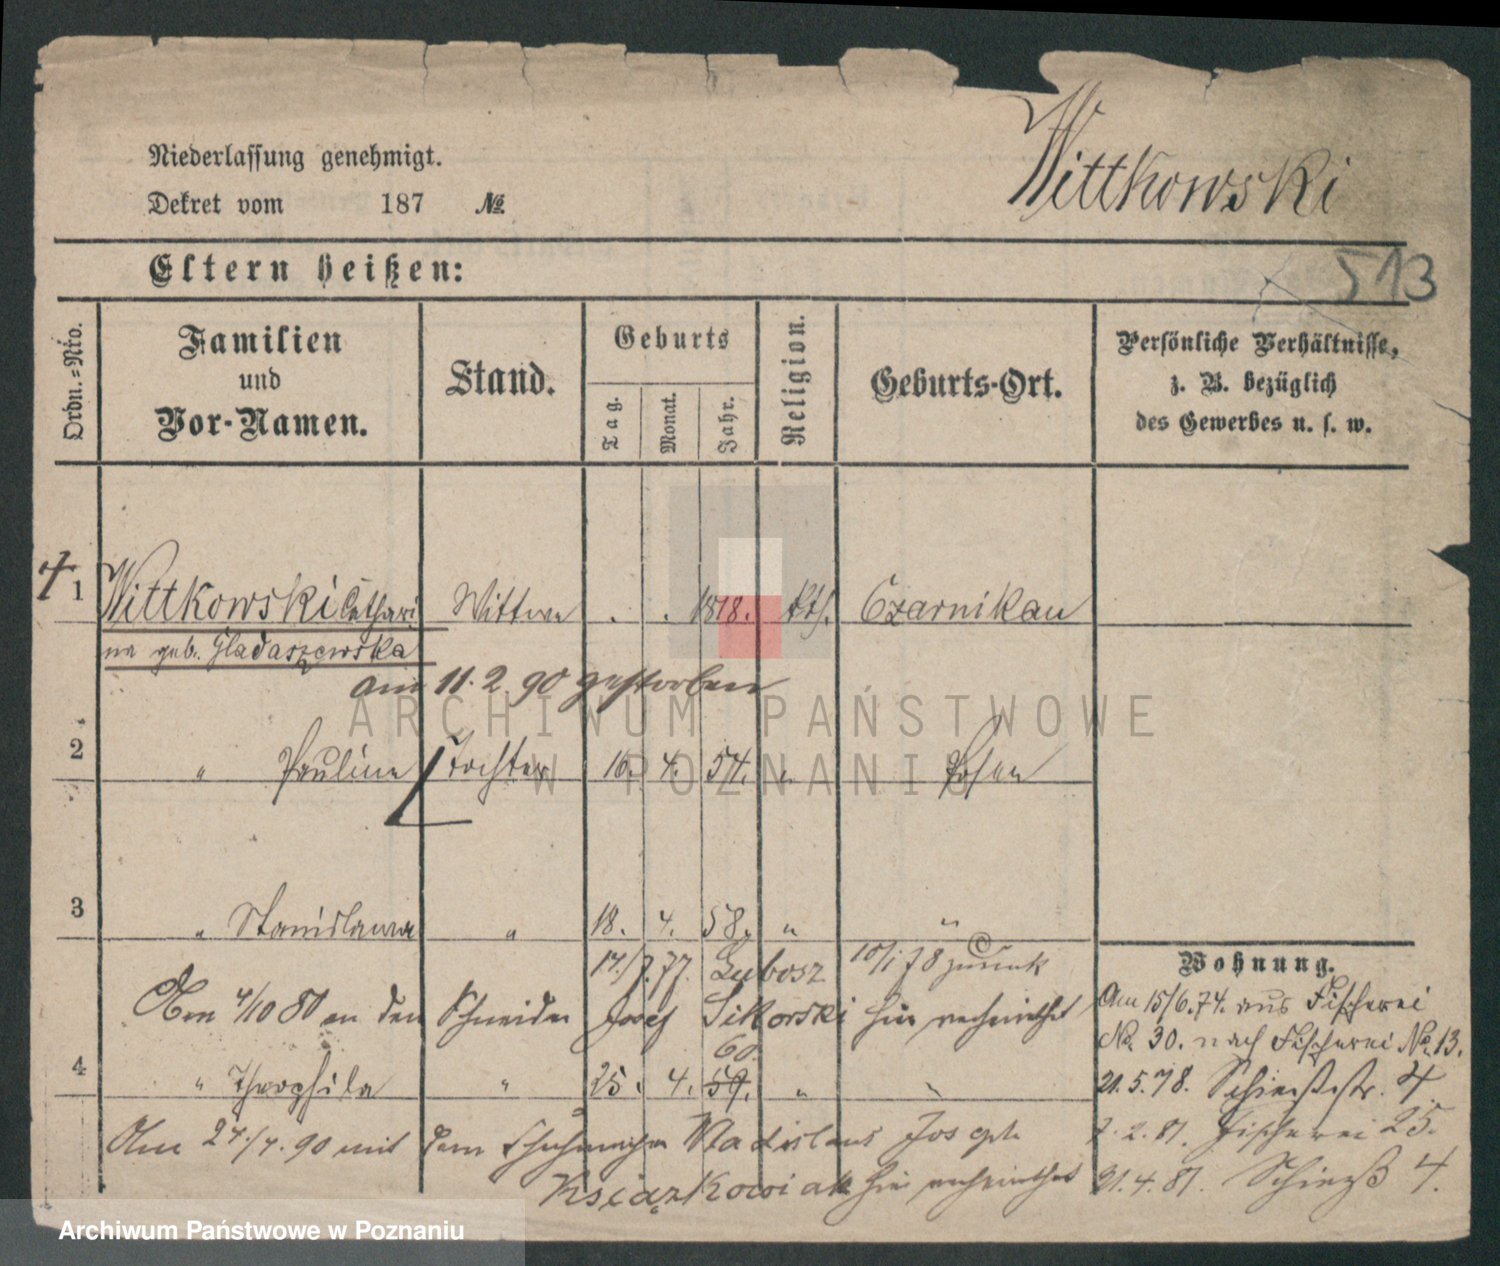 Niederlassung genehmigt.
Dekret vom 187 №
Wittkowski
513
Eltern heißen:
Ordn.-Nro.
Familien
und
Vor-Namen.
Stand.
Geburts
Tag.
Monat.
Jahr.
Religion.
Geburts-Ort.
Persönliche Verhältnisse,
z. B. bezüglich
des Gewerbes u. s. w.
1 Wittkowski Cathari Wittwe . . 1818. kth. Czarnikau
na geb. Gladaszewska
am 11. 2. 90 gestorben
2 " Pauline Tochter 16. 4. 54. " Posen
3 " Stanislawa " 18. 4. 58. " "
17./7. 77. Lubosz 10/1 78 zurück
Am 4/10 80 an den Schneider Josef Sikorski hier verheirathet
60.
4 " Theophila " 25. 4. 59. " "
Am 27./7. 90 mit dem Schuhmacher Wladislaus Joseph
Książkowiak hier verheirathet
Wohnung.
Am 15/6. 74. aus Fischerei
No. 30. nach Fischerei No. 13.
21. 5. 78. Schießstr. 4.
7. 2. 81. Fischerei 25.
21. 4. 81. Schieß 4.
©
ARCHIWUM PAŃSTWOWE
W POZNANIU
Archiwum Państwowe w Poznaniu